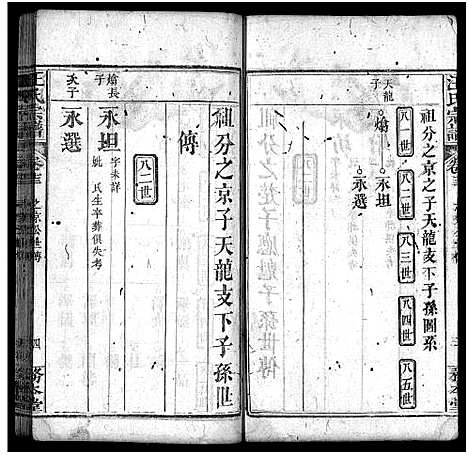 汪氏宗譜
祖分之京之子天龍支下子孫圖系
八一世 八二世 八三世 八四世 八五世
天龍子
熻
永坦
永選
務本堂
祖分之京子天龍支下子孫世
傳
八二世
熻長子
永坦
字未詳
妣 氏生卒葬俱失考
次子
永選
汪氏宗譜
四
務本堂